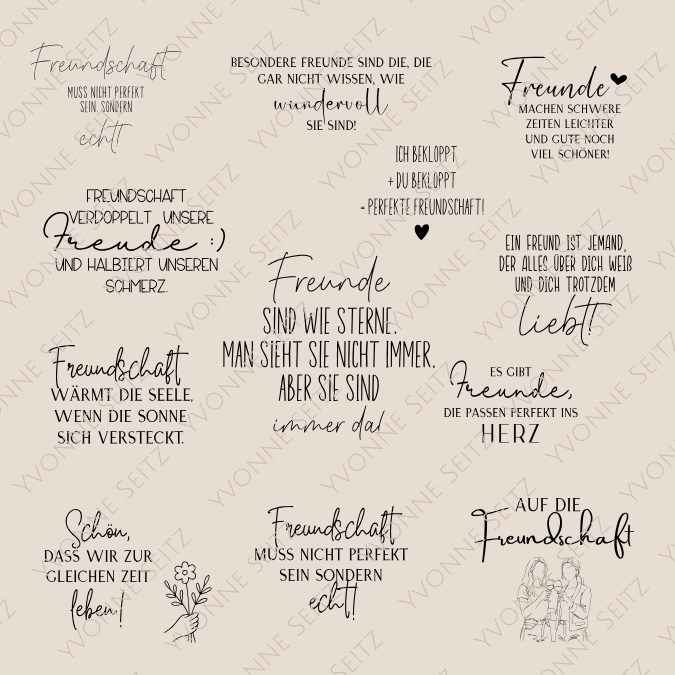 Freundschaft
MUSS NICHT PERFEKT
SEIN, SONDERN
echt!
BESONDERE FREUNDE SIND DIE, DIE
GAR NICHT WISSEN, WIE
wundervoll
SIE SIND!
Freunde
MACHEN SCHWERE
ZEITEN LEICHTER
UND GUTE NOCH
VIEL SCHÖNER!
ICH BEKLOPPT
+ DU BEKLOPPT
= PERFEKTE FREUNDSCHAFT!
FREUNDSCHAFT
VERDOPPELT UNSERE
Freude :)
UND HALBIERT UNSEREN
SCHMERZ.
EIN FREUND IST JEMAND,
DER ALLES ÜBER DICH WEIß
UND DICH TROTZDEM
liebt!
Freunde
SIND WIE STERNE.
MAN SIEHT SIE NICHT IMMER,
ABER SIE SIND
immer da!
Freundschaft
WÄRMT DIE SEELE,
WENN DIE SONNE
SICH VERSTECKT.
ES GIBT
Freunde,
DIE PASSEN PERFEKT INS
HERZ
Schön,
DASS WIR ZUR
GLEICHEN ZEIT
leben!
Freundschaft
MUSS NICHT PERFEKT
SEIN SONDERN
echt!
AUF DIE
Freundschaft
YVONNE SEITZ